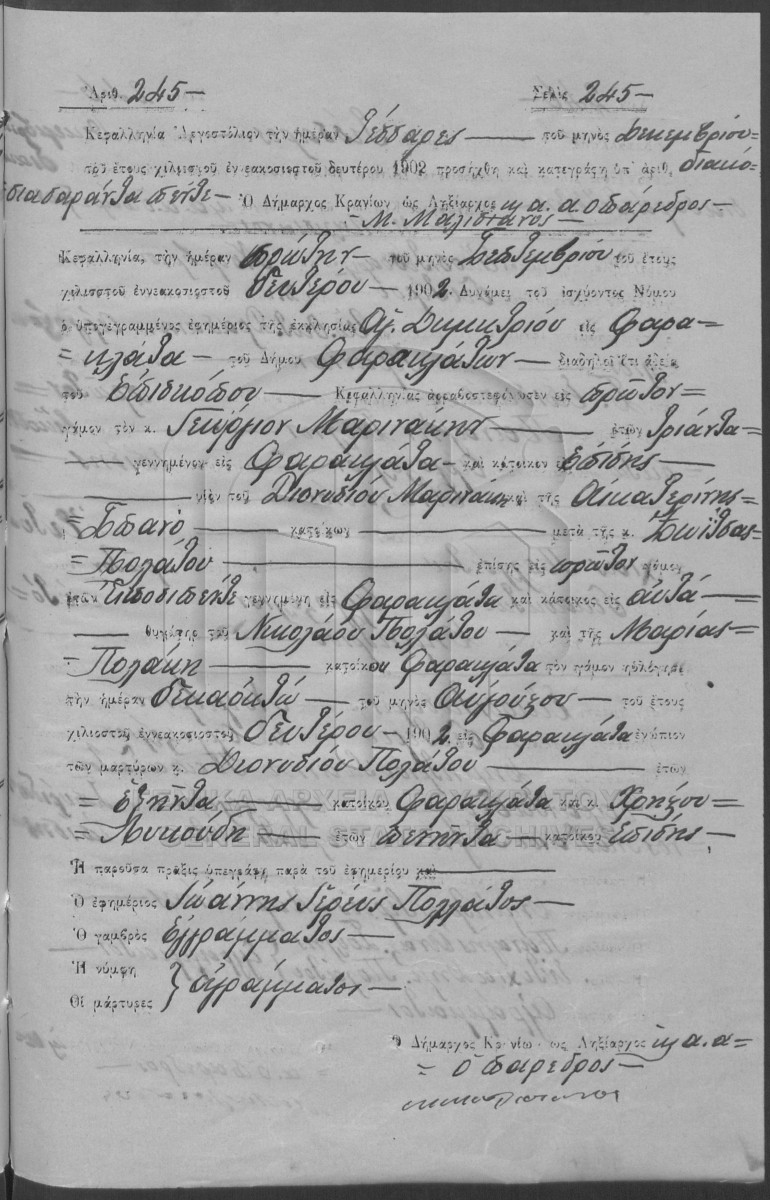 Ἀριθ. 245 — Σελὶς 245 —
Κεφαλληνία Ἀργοστόλιον τὴν ἡμέραν Τέσσαρες — τοῦ μηνὸς Δεκεμβρίου
τοῦ ἔτους χιλιοστοῦ ἐννεακοσιοστοῦ δευτέρου 1902 προσήχθη καὶ κατεγράφη ὑπ' ἀριθ. διακό=
σια σαράντα πέντε — Ὁ Δήμαρχος Κρανίων ὡς Ληξίαρχος κ. α. α. ο πάρεδρος —
Κεφαλληνία, τὴν ἡμέραν πρώτην — τοῦ μηνὸς Σεπτεμβρίου τοῦ ἔτους
χιλιοστοῦ ἐννεακοσιοστοῦ δευτέρου — 1902. Δυνάμει τοῦ ἰσχύοντος Νόμου
ὁ ὑπογεγραμμένος ἐφημέριος τῆς ἐκκλησίας Αγ. Δημητρίου εἰς Φαρα=
=κλάτα — τοῦ Δήμου Φαρακλάτων — διαδηλοῖ ὅτι ἀδείᾳ
τοῦ Επισκόπου — Κεφαλληνίας ἀρραβοστεφόλυσεν εἰς πρῶτον=
γάμον τὸν κ. Γεώργιον Μαρινάκην — ἐτῶν τριάντα=
— γεννημένον εἰς Φαρακλάτα — καὶ κάτοικον επίσης —
— υἱὸν τοῦ Διονυσίου Μαρινάκη καὶ τῆς Αικατερίνης=
=Σπανό — κατοίκων — μετὰ τῆς κ.
=Πολάτου — ἐπίσης εἰς πρῶτον γάμον
ἐτῶν Εικοσιπέντε γεννημένη εἰς Φαρακλάτα καὶ κάτοικος εἰς αυτά —
— θυγάτηρ τοῦ Νικολάου Πολάτου — καὶ τῆς Μαρίας=
=Πολάκη — κατοίκου Φαρακλάτα τὸν γάμον ηὐλόγησε
τὴν ἡμέραν δεκαοκτώ — τοῦ μηνὸς Αυγούστου — τοῦ ἔτους
χιλιοστοῦ ἐννεακοσιοστοῦ δευτέρου — 1902. εἰς Φαρακλάτα ἐνώπιον
τῶν μαρτύρων κ. Διονυσίου Πολάτου — ἐτῶν
=εξήντα — κατοίκου Φαρακλάτα καὶ κ. Χρήστου=
=Λυκούδη — ἐτῶν πενήντα — κατοίκου Επίσης —
ΓΕΝΙΚΑ ΑΡΧΕΙΑ ΤΟΥ ΚΡΑΤΟΥΣ
GENERAL STATE ARCHIVES
Ἡ παροῦσα πρᾶξις ὑπεγράφη παρὰ τοῦ ἐφημερίου καὶ —
Ὁ ἐφημέριος Ιωάννης Ιερεύς Πολλάτος —
Ὁ γαμβρὸς εγγράμματος —
Ἡ νύμφη
Οἱ μάρτυρες } αγράμματοι —
Ὁ Δήμαρχος Κρανίων ὡς Ληξίαρχος κ. α. α=
= ο πάρεδρος —